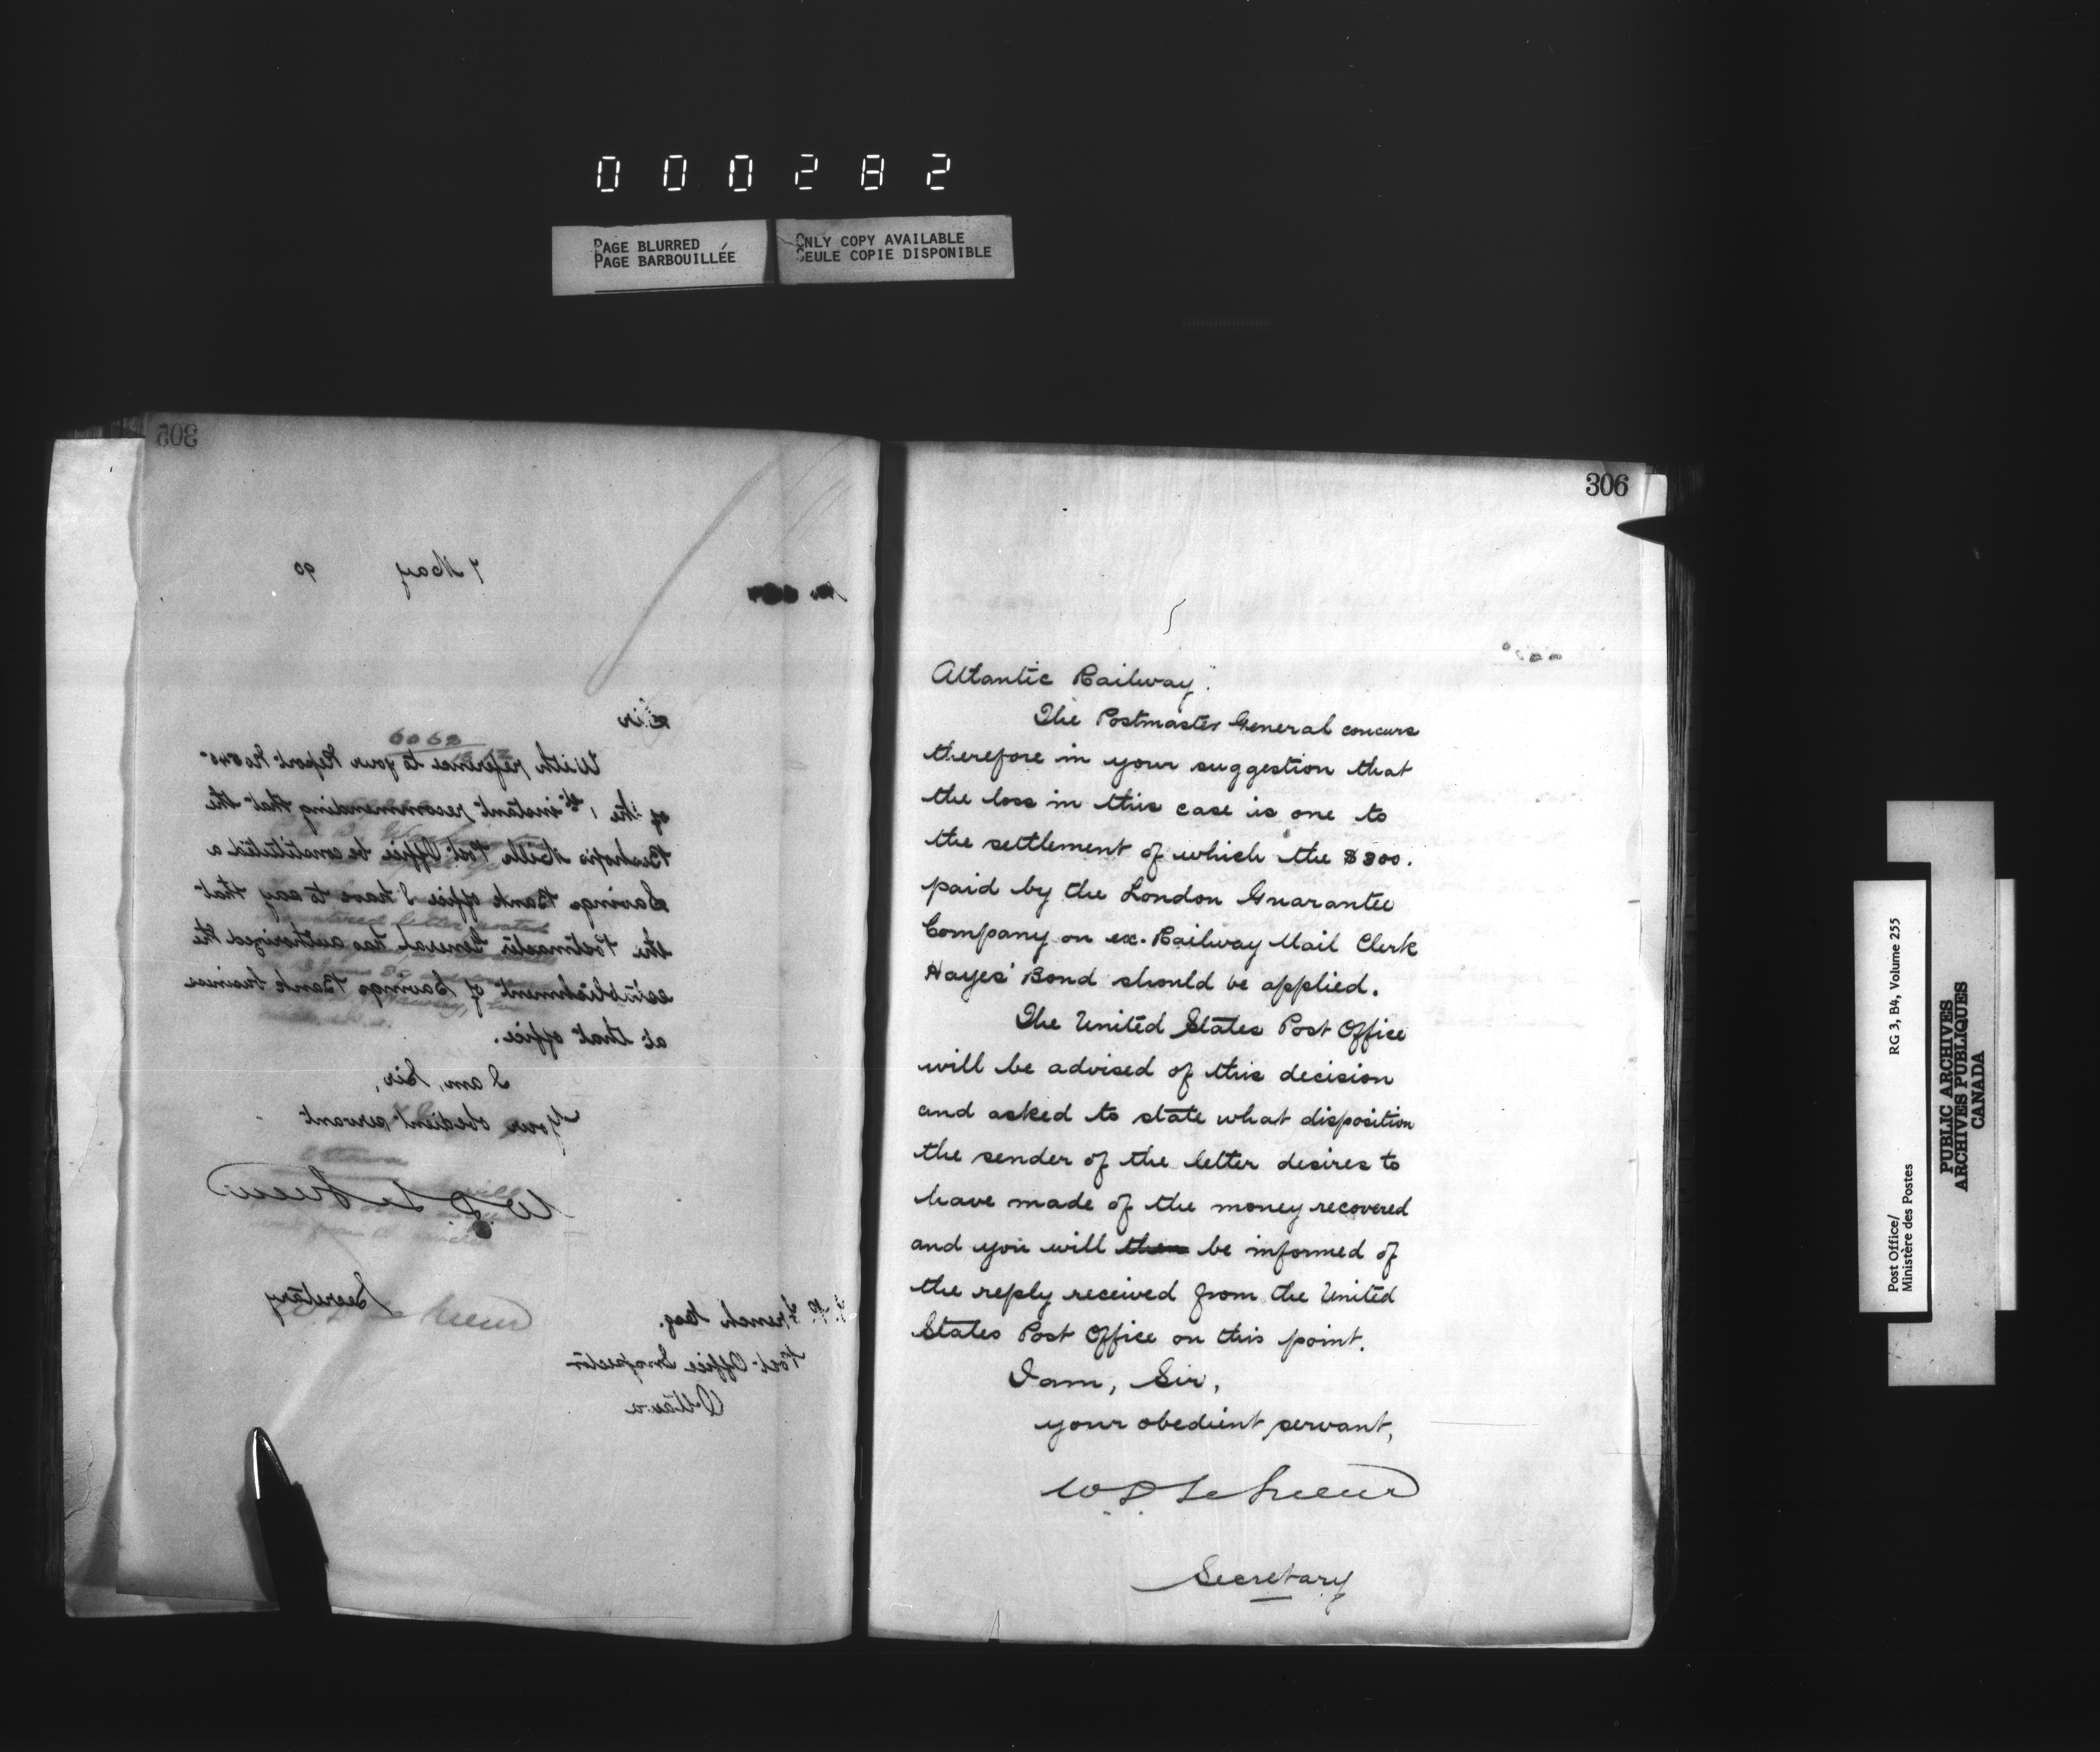 000282
PAGE BLURRED
PAGE BARBOUILLÉE
ONLY COPY AVAILABLE
SEULE COPIE DISPONIBLE
305
7 May 90
Sir
With reference to your Report No 545
of the 1st instant recommending that the
Bishop's Mills Post Office be constituted a
Savings Bank office I have to say that
the Postmaster General has authorized the
establishment of Savings Bank business
at that office.
I am, Sir,
Your obedient servant
W. D. LeSueur
Secretary
French Esq.
Post Office Inspector
Ottawa
306
Atlantic Railway.
The Postmaster General concurs
therefore in your suggestion that
the loss in this case is one to
the settlement of which the $300.
paid by the London Guarantee
Company on ex. Railway Mail Clerk
Hayes' Bond should be applied.
The United States Post Office
will be advised of this decision
and asked to state what disposition
the sender of the letter desires to
have made of the money recovered
and you will then be informed of
the reply received from the United
States Post Office on this point.
I am, Sir,
your obedient servant,
W D LeSueur
Secretary
Post Office/
Ministère des Postes
RG 3, B4, Volume 255
PUBLIC ARCHIVES
ARCHIVES PUBLIQUES
CANADA